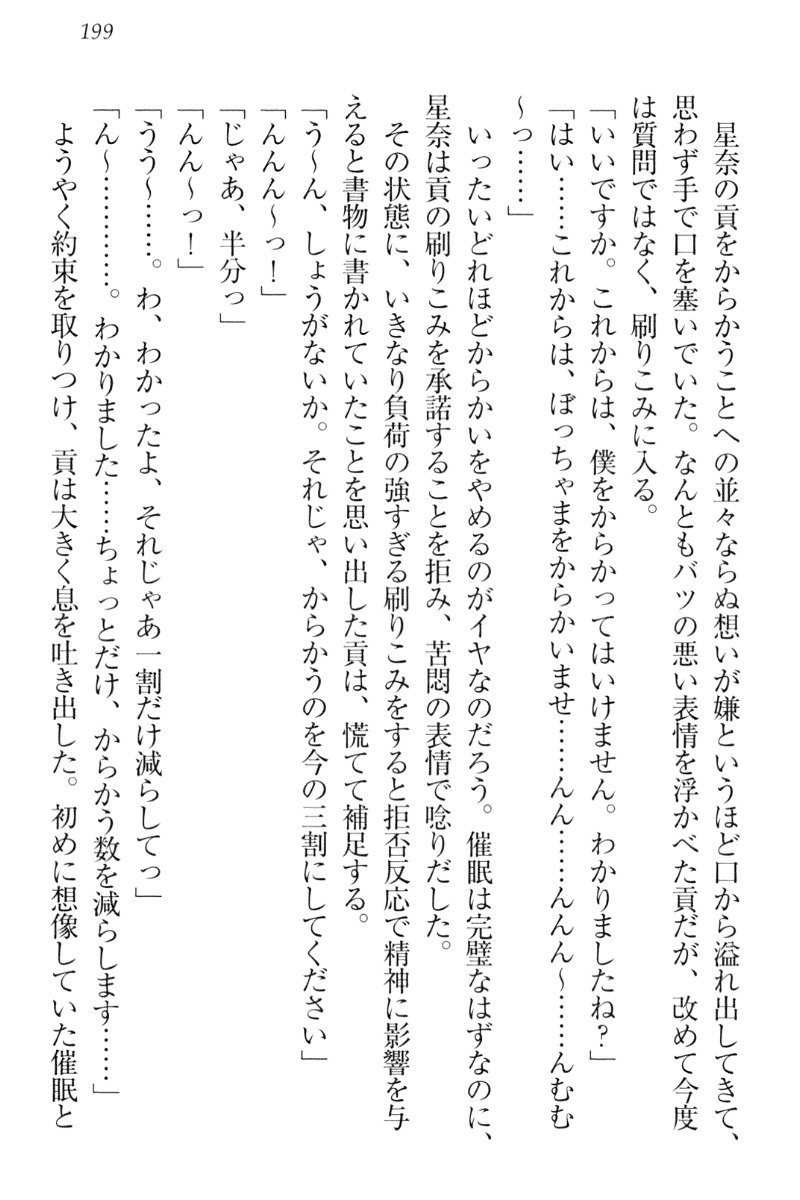 199
星奈の貢をからかうことへの並々ならぬ想いが嫌というほど口から溢れ出してきて、
思わず手で口を塞いでいた。なんともバツの悪い表情を浮かべた貢だが、改めて今度
は質問ではなく、刷りこみに入る。
「いいですか。これからは、僕をからかってはいけません。わかりましたね？」
「はい……これからは、ぼっちゃまをからかいませ……んん……んんん～……んむむ
～っ……」
いったいどれほどからかいをやめるのがイヤなのだろう。催眠は完璧なはずなのに、
星奈は貢の刷りこみを承諾することを拒み、苦悶の表情で唸りだした。
その状態に、いきなり負荷の強すぎる刷りこみをすると拒否反応で精神に影響を与
えると書物に書かれていたことを思い出した貢は、慌てて補足する。
「う～ん、しょうがないか。それじゃ、からかうのを今の三割にしてください」
「んんん～っ！」
「じゃあ、半分っ」
「んん～っ！」
「うう～……。わ、わかったよ、それじゃあ一割だけ減らしてっ」
「ん～…………。わかりました……ちょっとだけ、からかう数を減らします……」
ようやく約束を取りつけ、貢は大きく息を吐き出した。初めに想像していた催眠と